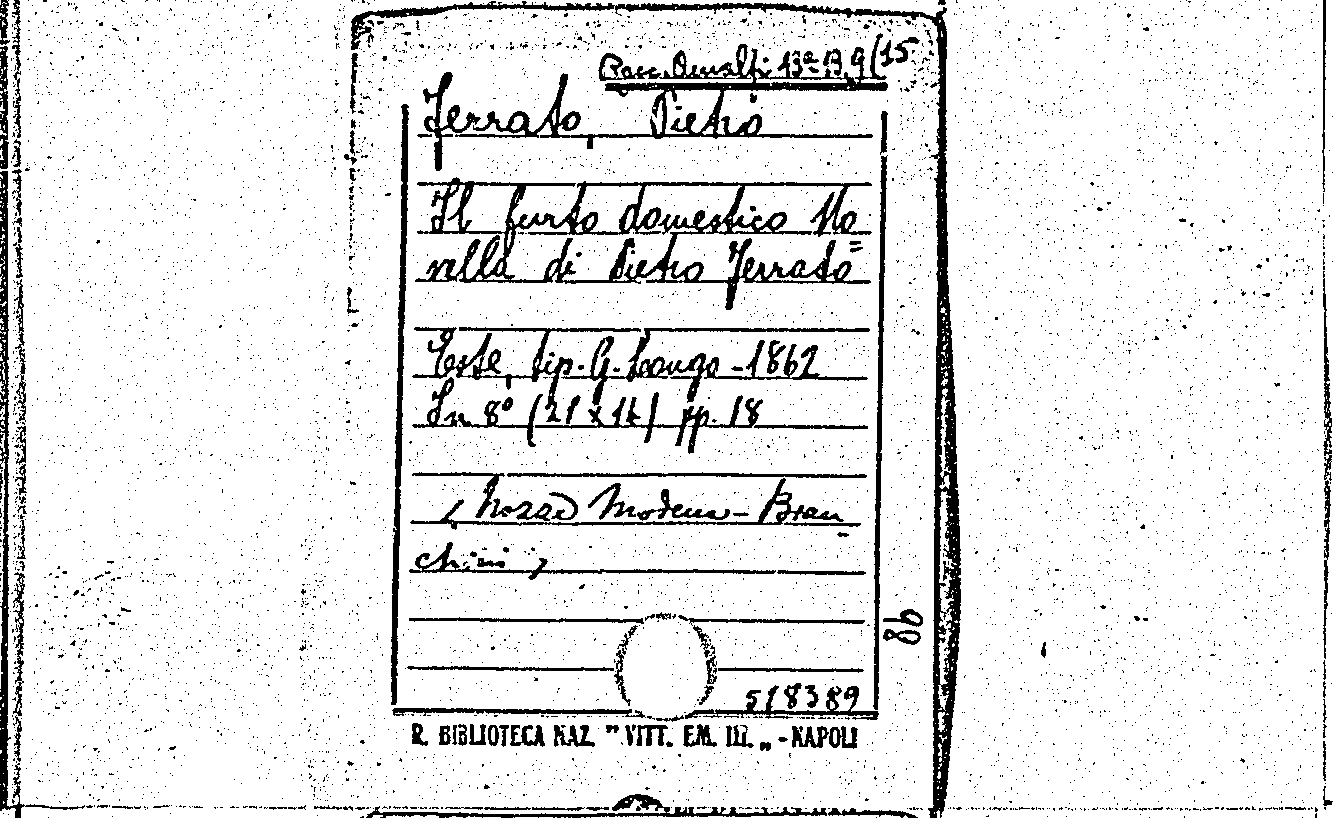 Racc. Amalfi 13ª B 9 (15
Ferrato, Pietro
Il furto domestico No=
vella di Pietro Ferrato
Este, tip. G. Longo - 1862
In 8º (21 x 14) pp. 18
(Nozze Modena - Bian
chini)
86
518389
R. BIBLIOTECA NAZ. " VITT. EM. III. „ - NAPOLI